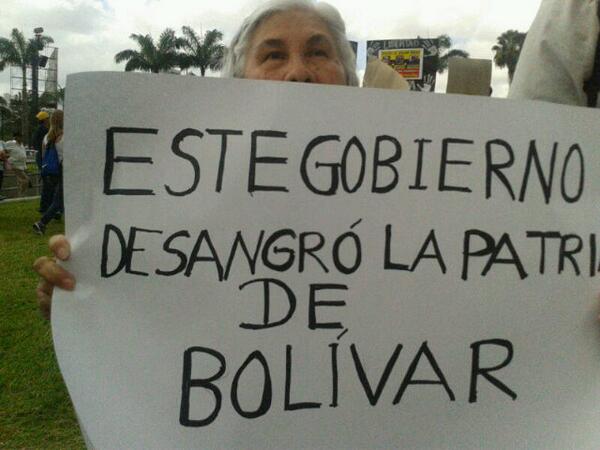 LIBERTAD
ESTE GOBIERNO
DESANGRÓ LA PATRI
DE
BOLÍVAR